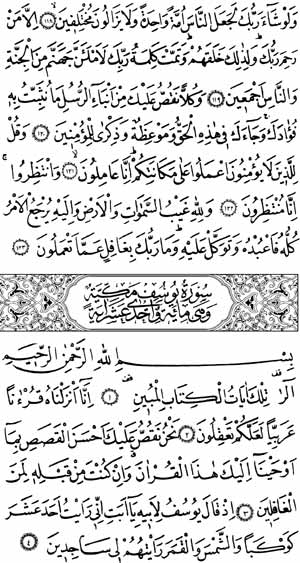 وَلَوْ شَاءَ رَبُّكَ لَجَعَلَ النَّاسَ اُمَّةً وَاحِدَةً وَلَا يَزَالُونَ مُخْتَلِفِينَ ﴿١١٨﴾ اِلَّا مَنْ
رَحِمَ رَبُّكَ وَلِذٰلِكَ خَلَقَهُمْ وَتَمَّتْ كَلِمَةُ رَبِّكَ لَاَمْلَـَٔنَّ جَهَنَّمَ مِنَ الْجِنَّةِ
وَالنَّاسِ اَجْمَعِينَ ﴿١١٩﴾ وَكُلًّا نَقُصُّ عَلَيْكَ مِنْ اَنْبَاءِ الرُّسُلِ مَا نُثَبِّتُ بِهِ
فُؤَادَكَ وَجَاءَكَ فِي هٰذِهِ الْحَقُّ وَمَوْعِظَةٌ وَذِكْرٰى لِلْمُؤْمِنِينَ ﴿١٢٠﴾ وَقُلْ
لِلَّذِينَ لَا يُؤْمِنُونَ اعْمَلُوا عَلٰى مَكَانَتِكُمْ اِنَّا عَامِلُونَ ﴿١٢١﴾ وَانْتَظِرُوا
اِنَّا مُنْتَظِرُونَ ﴿١٢٢﴾ وَلِلّٰهِ غَيْبُ السَّمٰوَاتِ وَالْاَرْضِ وَاِلَيْهِ يُرْجَعُ الْاَمْرُ
كُلُّهُ فَاعْبُدْهُ وَتَوَكَّلْ عَلَيْهِ وَمَا رَبُّكَ بِغَافِلٍ عَمَّا تَعْمَلُونَ ﴿١٢٣﴾
سُورَةُ يُوسُفَ مَكِّيَّةٌ
وَهِيَ مِائَةٌ وَاِحْدٰى عَشَرَةَ اٰيَةً
بِسْمِ اللّٰهِ الرَّحْمٰنِ الرَّحِيمِ
الٓرٰ تِلْكَ اٰيَاتُ الْكِتَابِ الْمُبِينِ ﴿١﴾ اِنَّا اَنْزَلْنَاهُ قُرْءٰنًا
عَرَبِيًّا لَعَلَّكُمْ تَعْقِلُونَ ﴿٢﴾ نَحْنُ نَقُصُّ عَلَيْكَ اَحْسَنَ الْقَصَصِ بِمَا
اَوْحَيْنَا اِلَيْكَ هٰذَا الْقُرْاٰنَ وَاِنْ كُنْتَ مِنْ قَبْلِهِ لَمِنَ
الْغَافِلِينَ ﴿٣﴾ اِذْ قَالَ يُوسُفُ لِاَبِيهِ يَا اَبَتِ اِنِّي رَاَيْتُ اَحَدَ عَشَرَ
كَوْكَبًا وَالشَّمْسَ وَالْقَمَرَ رَاَيْتُهُمْ لِي سَاجِدِينَ ﴿٤﴾